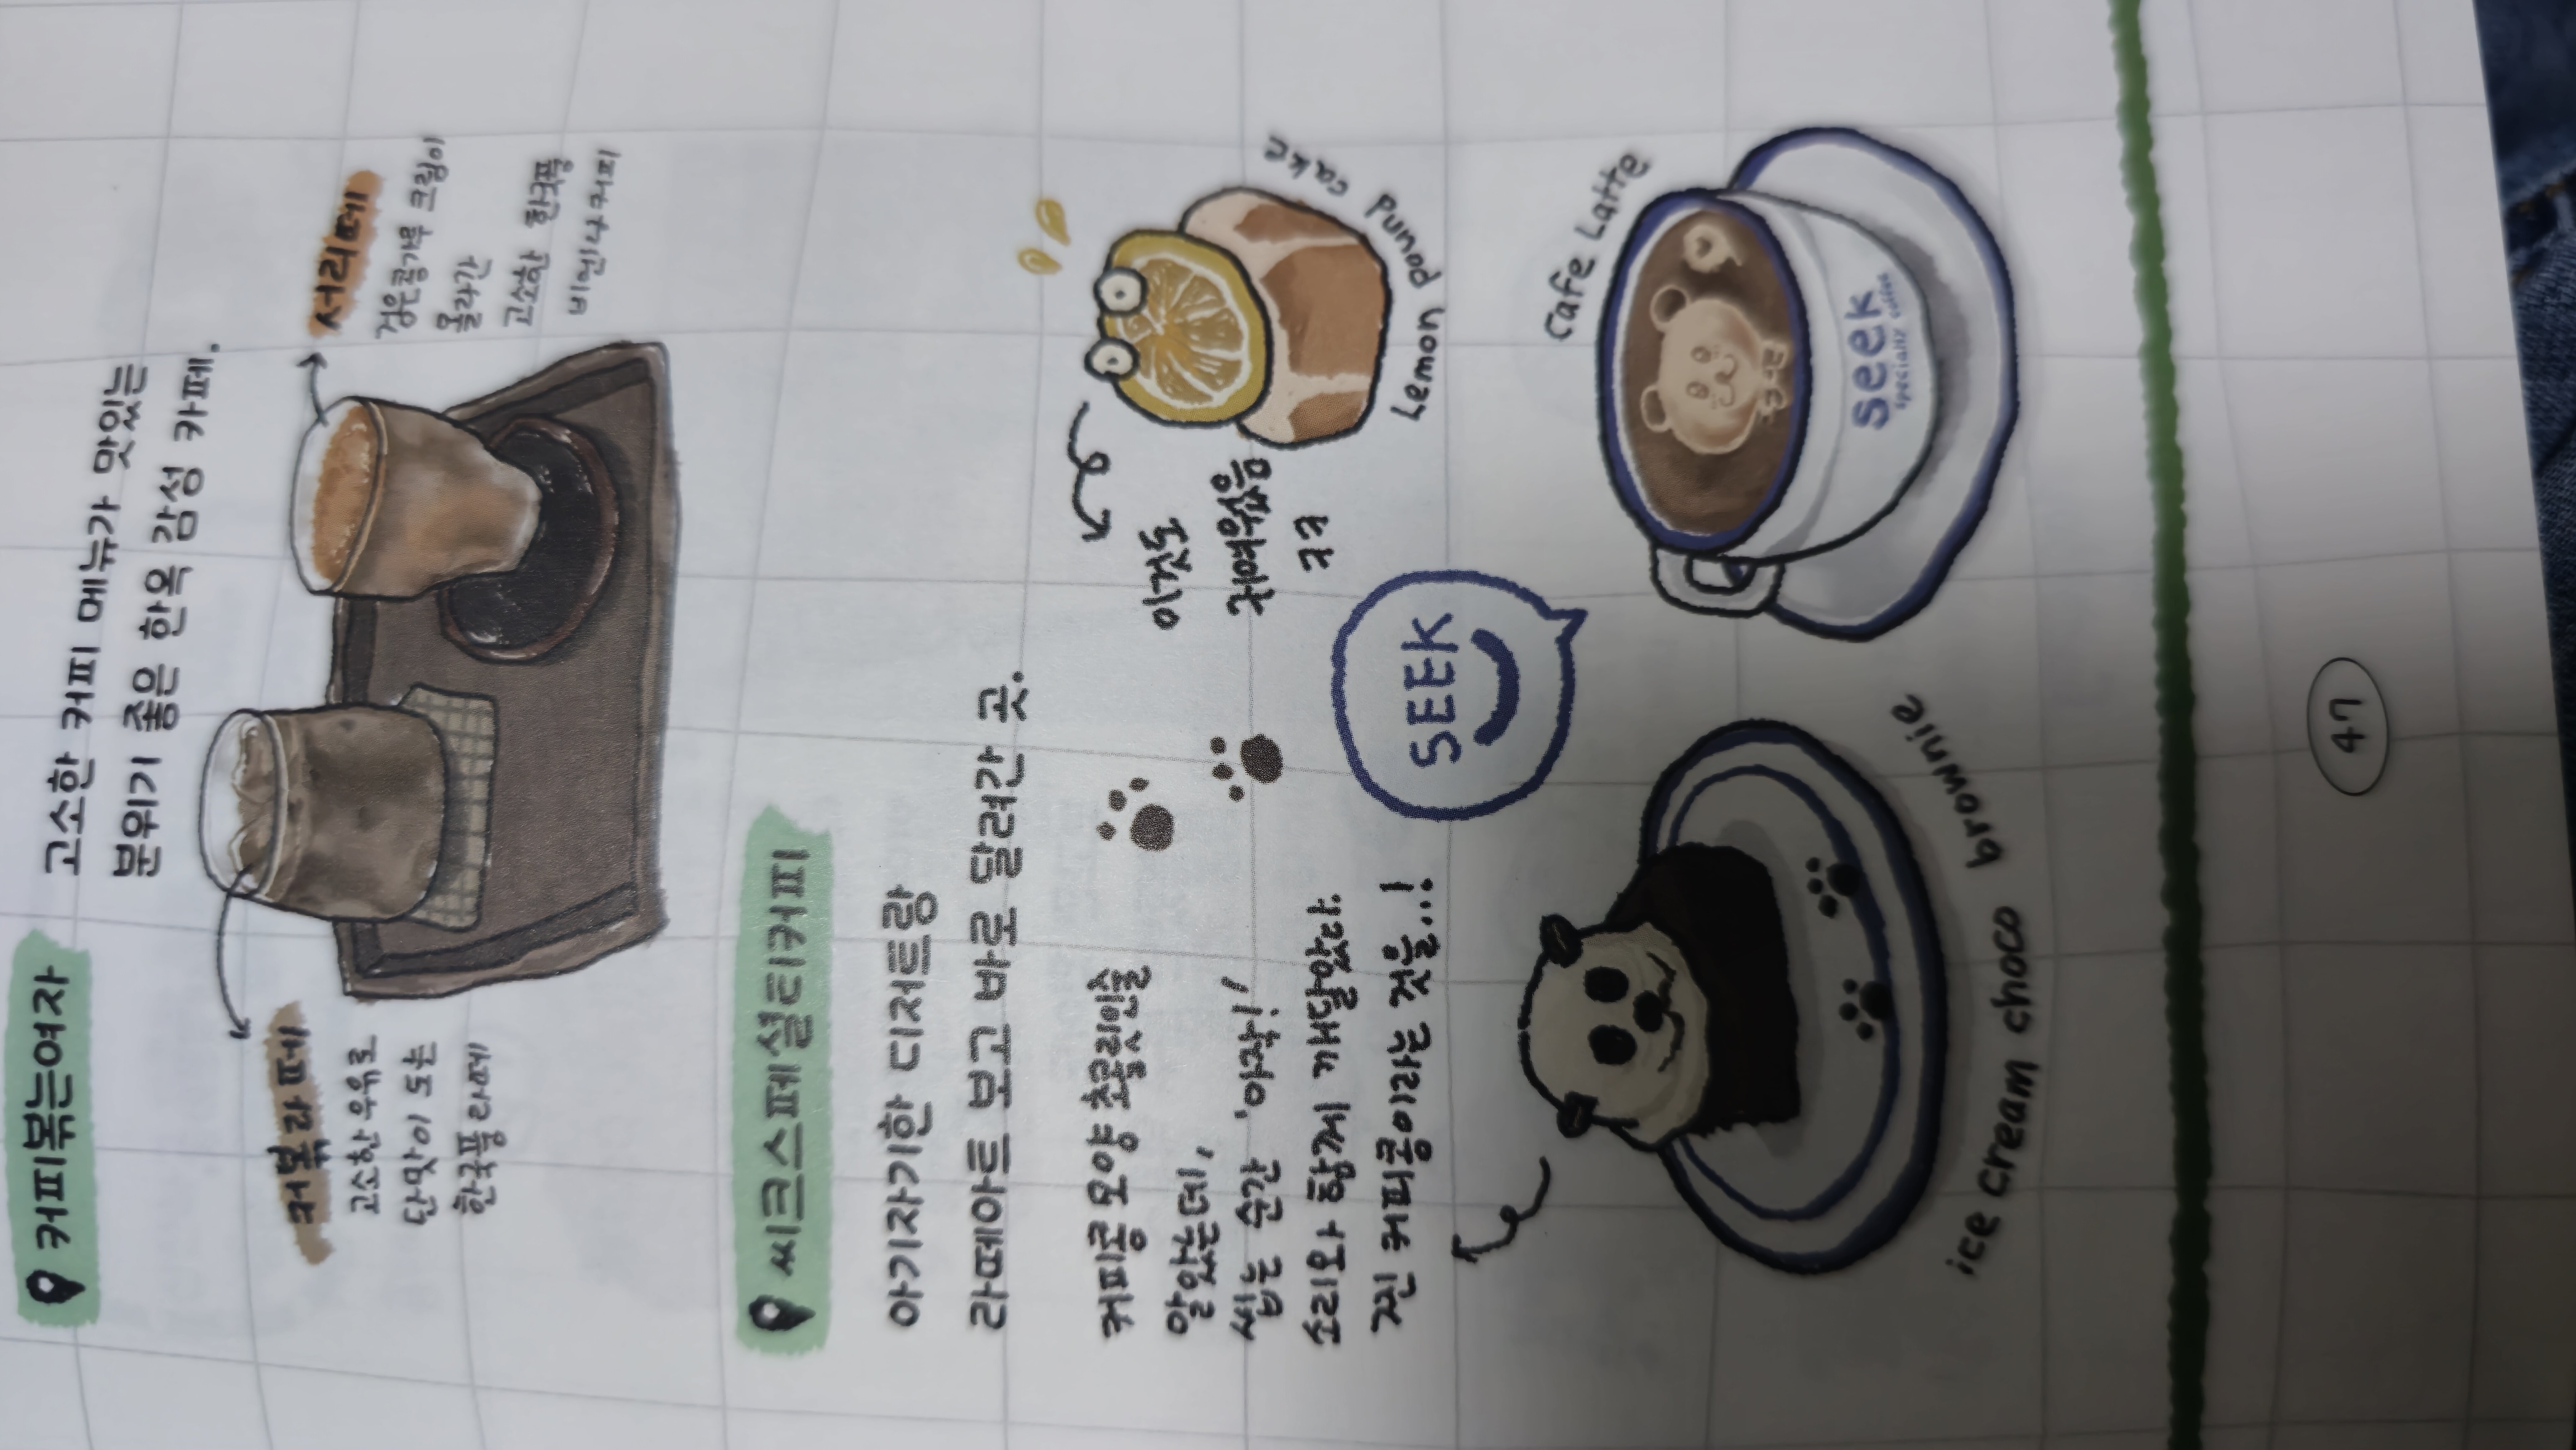 커피볶는여자
고소한 커피 메뉴가 맛있는
분위기 좋은 한옥 감성 카페.
커볶라떼
고소한 우유로
단맛이 도는
한국풍 라떼
서리떼
검은콩가루 크림이
올라간
고소한 한국풍
비엔나커피
씨크스페셜티커피
아기자기한 디저트랑
라떼아트 보고 바로 달려간 곳.
커피콩 모양 초콜릿인줄
알았는데,
씹는 순간, '아작!'
소리와 함께 깨달았다.
찐 커피콩이라는 것을...!
이것도
귀여웠음
ㅋㅋ
Lemon Punod cake
SEEK
Cafe Latte
seek
specialty coffee
ice cream choco brownie
47